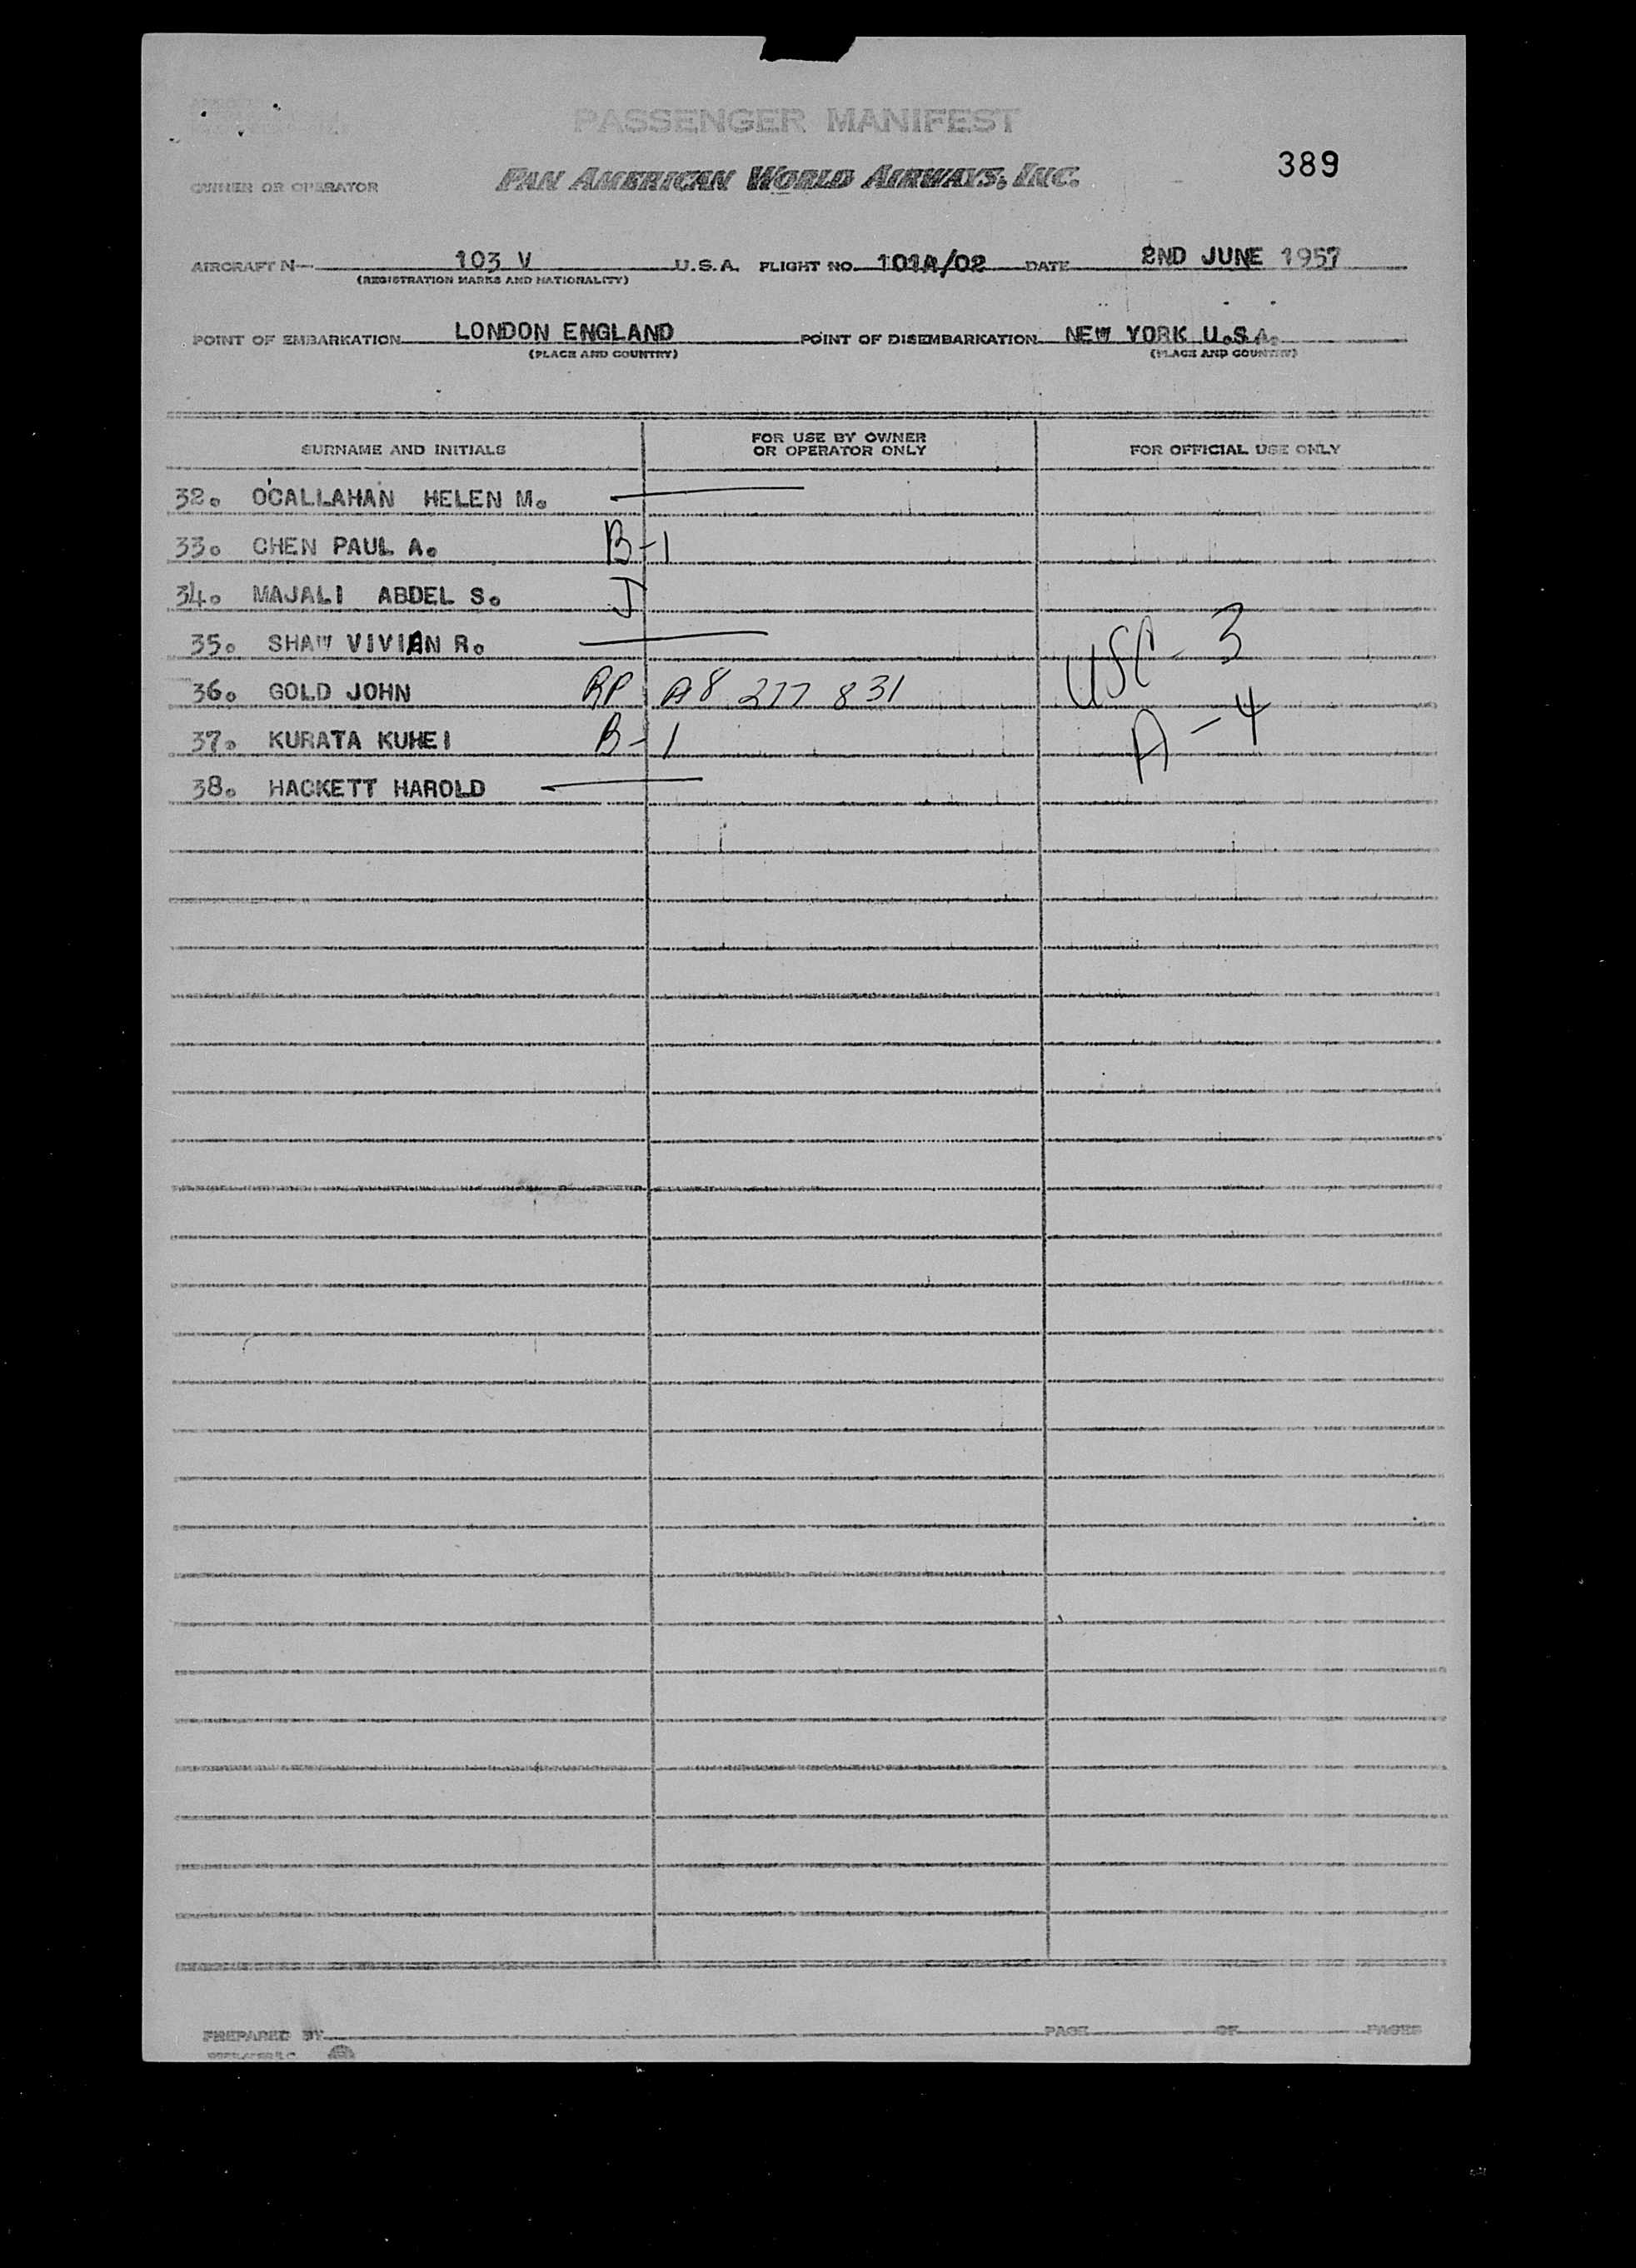 PASSENGER MANIFEST
389
OWNER OR OPERATOR PAN AMERICAN WORLD AIRWAYS, INC.
AIRCRAFT N- 103 V U.S.A. FLIGHT NO. 101A/02 DATE 2ND JUNE 1957
(REGISTRATION MARKS AND NATIONALITY)
POINT OF EMBARKATION LONDON ENGLAND POINT OF DISEMBARKATION NEW YORK U.S.A.
(PLACE AND COUNTRY) (PLACE AND COUNTRY)
SURNAME AND INITIALS FOR USE BY OWNER OR OPERATOR ONLY FOR OFFICIAL USE ONLY
32. O'CALLAHAN HELEN M.
33. CHEN PAUL A. B-1
34. MAJALI ABDEL S. J
35. SHAW VIVIAN R.
USC - 3
36. GOLD JOHN RP A8 277 831
37. KURATA KUHEI B-1
A - 4
38. HACKETT HAROLD
PREPARED BY PAGE OF PAGES